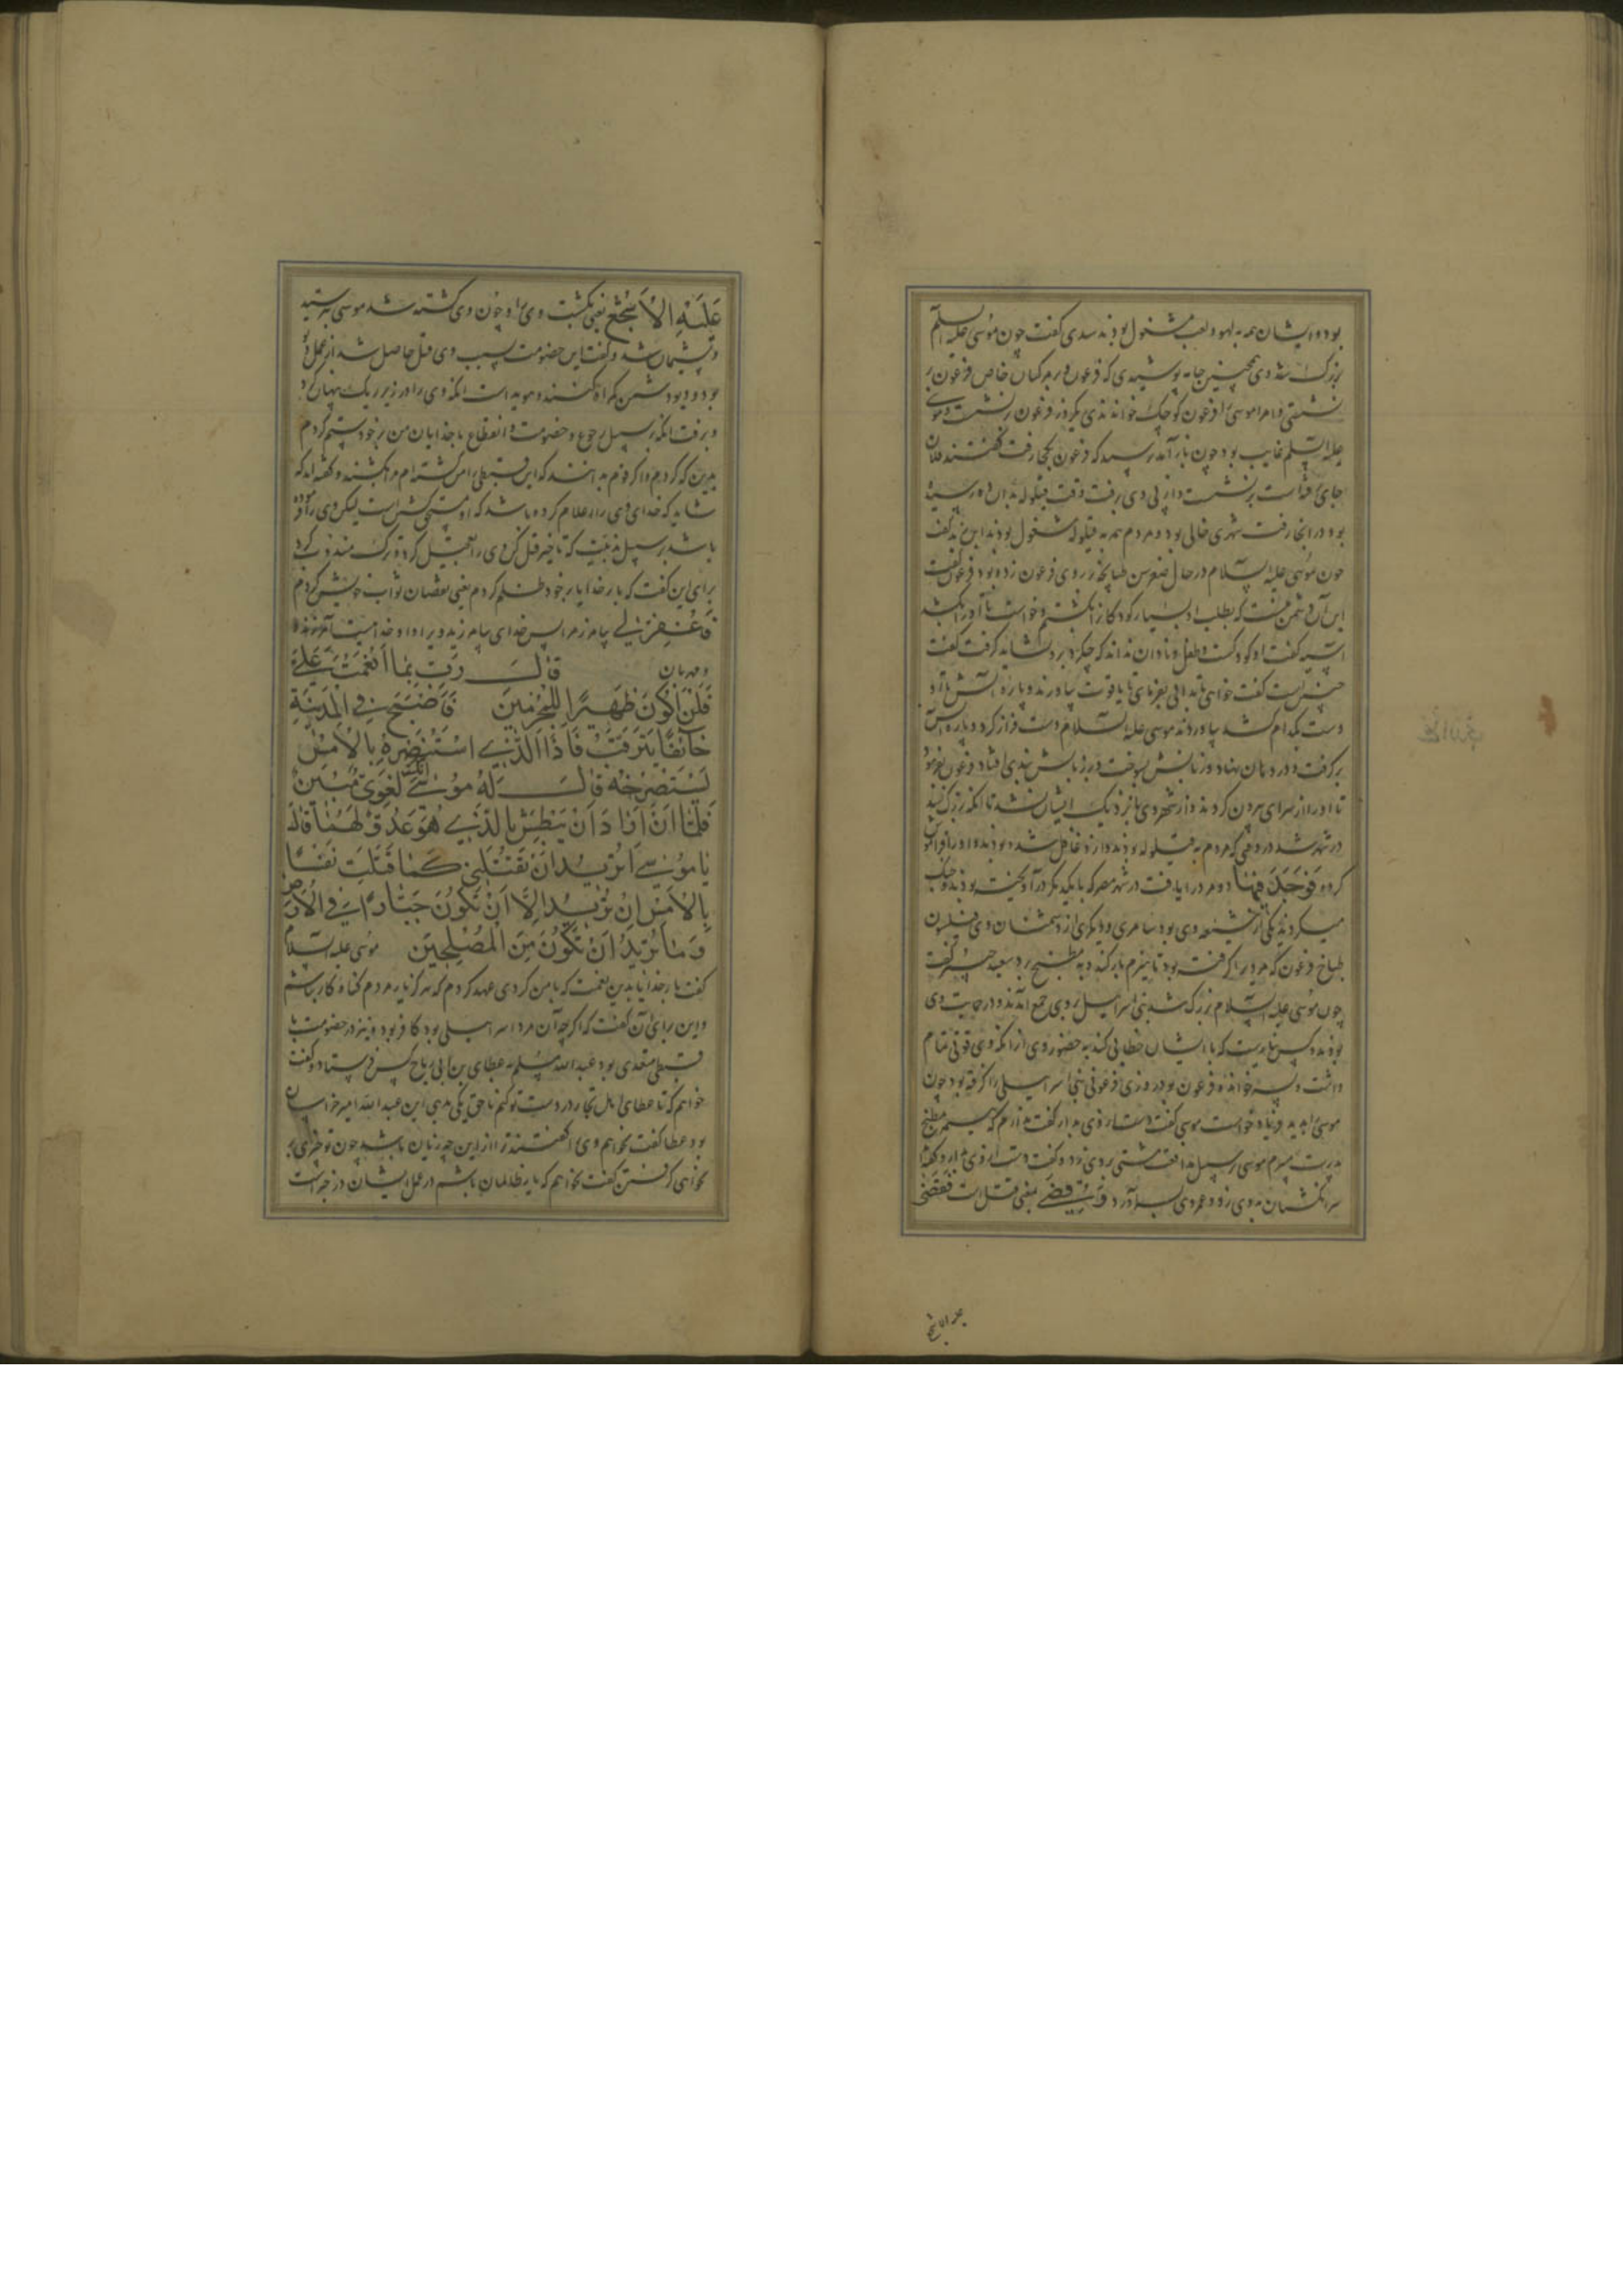 بود و ایشان همه به لهو و لعب مشغول بودند سدی گفت چون موسی علیه السلم
بزرگ شد وی همچنین جامه پوشیدی که فرعون و بر مرکبان خاص فرعون بر
نشستی و مر موسی را فرعون کوچک خواندندی یک روز فرعون برنشست و موسی
علیه السلم غایب بود چون باز آمد پرسید که فرعون کجا رفت گفتند فلان
جای رفته است برنشست و از پی وی برفت وقت قیلوله بدان ده رسیده
بود در آنجا رفت شهری خالی بود و مردم همه به قیلوله مشغول بودند ابن زید گفت
چون موسی علیه السلام در حال صغر سن طپانچه بر روی فرعون زده بود فرعون گفت
این آن دشمن منست که بطلب او بسیار کودکان را بکشتم و خواست تا او را بکشد
آسیه گفت او کودکست و طفل و نادان نداند که چکرد بروی نشاید گرفت گفت
چنین نیست گفت خواهی تا بدانی بفرمای تا یاقوت بیاورند و پاره آتش تا او
دست بکدام کشد بیاوردند موسی علیه السلام دست فراز کرد و پاره آتش
برگرفت و در دهان نهاد و زبانش بسوخت و بر زبانش بندی افتاد فرعون بفرمود
تا او را از سرای بیرون کردند و از شهر وی را نزدیک ایشان نشد تا آنکه بزرگ شد
در شهر شد در وقتی که مردم به قیلوله بودند و از وی غافل شده بودند و او را فراموش
کرده فَوَجَدَ فِیهَا دو مرد را یافت در شهر مصر که با یکدیگر در آویخته بودند و جنگ
میکردند یکی از شیعه وی بود سامری و دیگری از دشمنان وی فیلسون
طباخ فرعون که مرد را گرفته بود تا هیزم بار کند و به مطبخ برد سعید جبیر گفت
چون موسی علیه السلام بزرگ شد بنی اسرائیل بر وی جمع آمدند و در حمایت وی
بودند و کس نیارست که با ایشان خطابی کند به حضور وی از آنکه وی قوتی تمام
داشت و پسر خوانده فرعون بود روزی فرعونی بنی اسرائیلی را گرفته بود چون
موسی را بدید فریاد خواست موسی گفت دست از وی بدار گفت ندارم که هیزم مطبخ
پدرت میبرم موسی بر سبیل مدافعت مشتی بر وی زد و گفت دست از وی بدار و گفته‌اند
سر انگشتان به وی زد و عمر وی بسر آورد و قضی یعنی قتل است فَقَضَی
عَلَیْهِ الاشجع یعنی بکشت وی را و چون وی کشته شد موسی بترسید
و پشیمان شد و گفت این خصومت بسبب وی قتل حاصل شد از عمل دیو
بود و دیو دشمن گمراه کننده و هویداست آنکه وی را در زیر ریگ پنهان کرد
و برفت آنکه بر سبیل رجوع و خضوع و انقطاع با خدا یا من بر خود ستم کردم
بدین که کردم و اگر قوم بدانند که این قبطی را من کشته ام مرا بکشند و گفته اند که
شاید که خدای وی را اعلام کرده باشد که او مستحق کشتن است لیکن وی را فرموده
باشد بر سبیل ندبیت که تاخیر قتل کن وی را تعجیل کرد و ترک مندوب کرد
برای این گفت که بار خدایا بر خود ظلم کردم یعنی نقصان ثواب خویش کردم
فَاغْفِرْ لِی بیامرز مرا پس خدای بیامرزید ویرا و او خداییست آمرزنده
و مهربان قَالَ رَبِّ بِمَا أَنْعَمْتَ عَلَیَّ
فَلَنْ أَکُونَ ظَهِیرًا لِلْمُجْرِمِینَ فَأَصْبَحَ فِی الْمَدِینَةِ
خَائِفًا یَتَرَقَّبُ فَإِذَا الَّذِی اسْتَنْصَرَهُ بِالْأَمْسِ
یَسْتَصْرِخُهُ قَالَ لَهُ مُوسَی إِنَّکَ لَغَوِیٌّ مُبِینٌ
فَلَمَّا أَنْ أَرَادَ أَنْ یَبْطِشَ بِالَّذِی هُوَ عَدُوٌّ لَهُمَا قَالَ
یَا مُوسَی أَتُرِیدُ أَنْ تَقْتُلَنِی کَمَا قَتَلْتَ نَفْسًا
بِالْأَمْسِ إِنْ تُرِیدُ إِلَّا أَنْ تَکُونَ جَبَّارًا فِی الْأَرْضِ
وَمَا تُرِیدُ أَنْ تَکُونَ مِنَ الْمُصْلِحِینَ موسی علیه السلام
گفت بار خدایا بدین نعمت که با من کردی عهد کردم که هرگز یار مردم گناه کار نباشم
و این برای آن گفت که اگر چه آن مرد اسرائیلی بود کافر بود و نیز در خصومت با
قبطی متعدی بود عبدالله مسلم به عطای بن ابی رباح کس فرستاد و گفت
خواهم که تا عطای اهل بخارا در دست تو کنم تا حق یکی بدهی این عبدالله امیر خراسان
بود عطا گفت نخواهم وی را گفتند ترا از این چه زیان باشد چون تو چیزی بر
نخواهی گرفتن گفت نخواهم که یار ظالمان باشم در عمل ایشان در خبر است